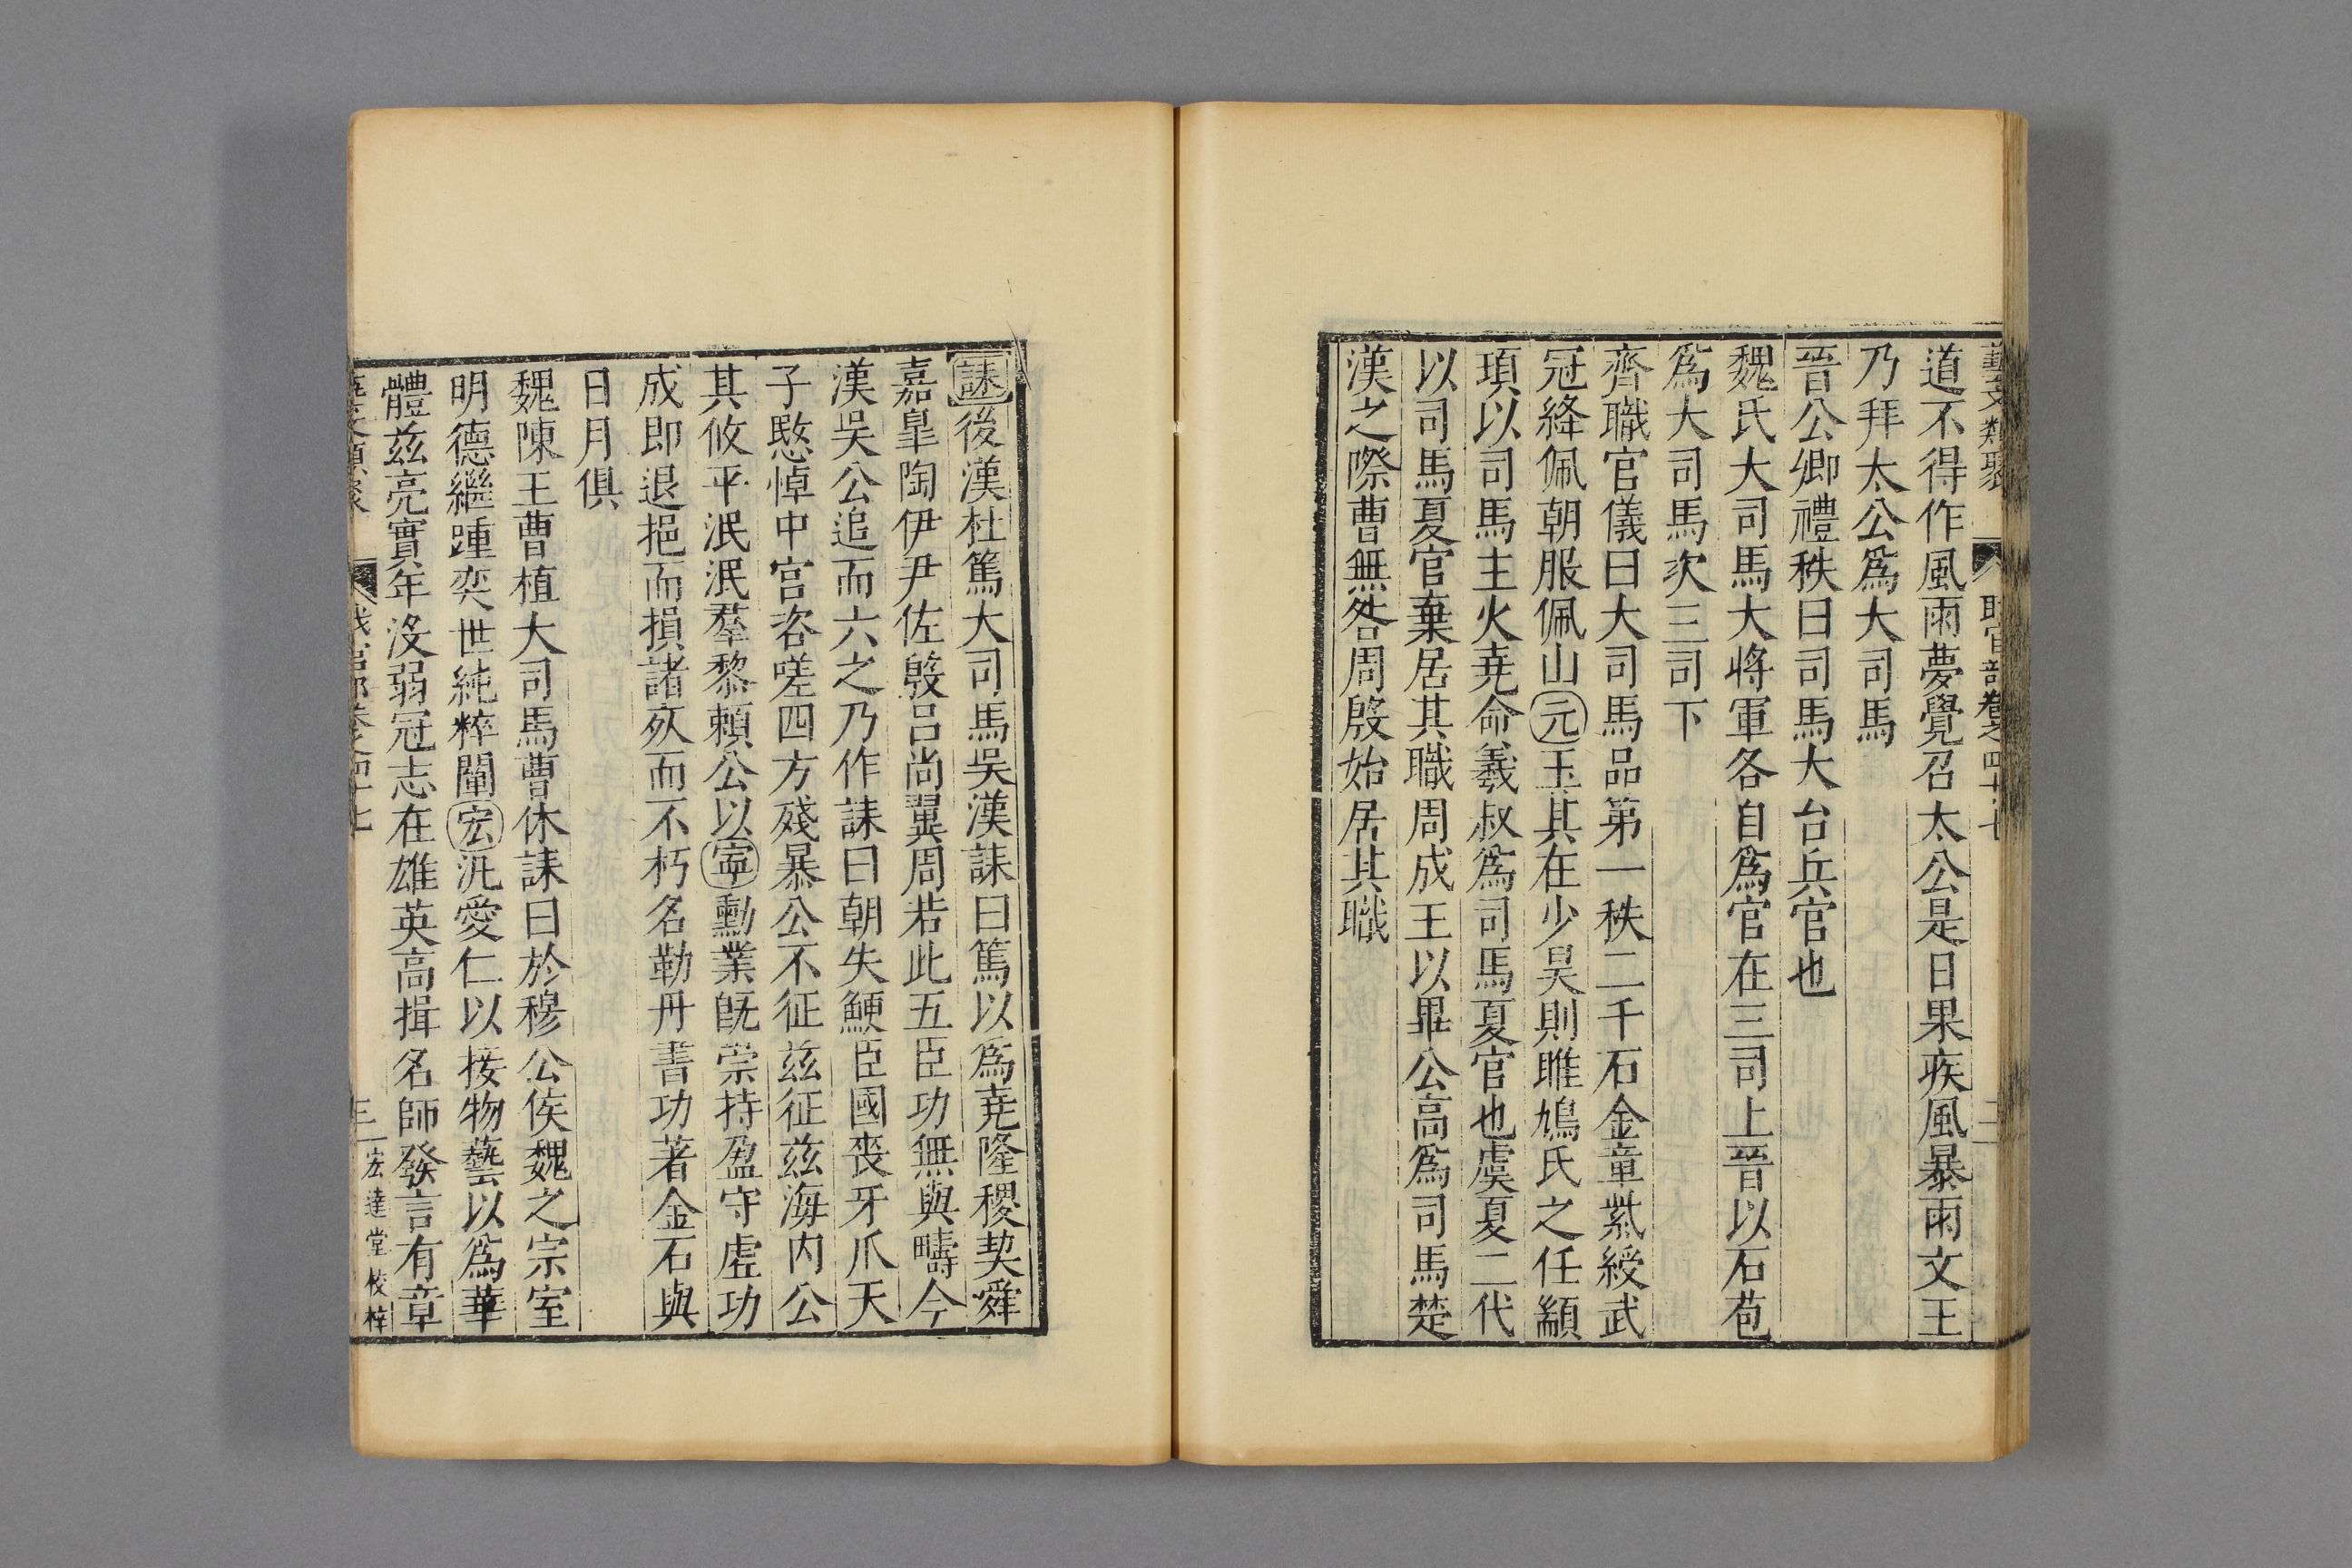 藝文類聚 職官部卷之四十七 二
道不得作風雨夢覺召太公是日果疾風暴雨文王
乃拜太公爲大司馬
晉公卿禮秩曰司馬大台兵官也
魏氏大司馬大將軍各自爲官在三司上晉以石苞
爲大司馬次三司下
齊職官儀曰大司馬品第一秩二千石金章紫綬武
冠絳佩朝服佩山元玉其在少昊則雎鳩氏之任顓
頊以司馬主火堯命羲叔爲司馬夏官也虞夏二代
以司馬夏官棄居其職周成王以畢公高爲司馬楚
漢之際曹無咎周殷始居其職
誄後漢杜篤大司馬吳漢誄曰篤以爲堯隆稷契舜
嘉皐陶伊尹佐殷呂尚翼周若此五臣功無與疇今
漢吳公追而六之乃作誄曰朝失鯁臣國喪牙爪天
子愍悼中宮咨嗟四方殘暴公不征茲征茲海內公
其攸平泯泯羣黎賴公以寍勳業旣崇持盈守虛功
成即退挹而損諸死而不朽名勒丹書功著金石與
日月俱
魏陳王曹植大司馬曹休誄曰於穆公侯魏之宗室
明德繼踵奕世純粹闡宏汎愛仁以接物藝以爲華
體茲亮實年沒弱冠志在雄英高揖名師發言有章
藝文類聚 職官部卷之四十七 三 宏達堂校梓